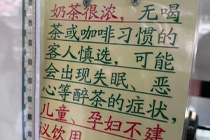 奶茶很浓，无喝
茶或咖啡习惯的
客人慎选，可能
会出现失眠、恶
心等醉茶的症状，
儿童、孕妇不建
议饮用